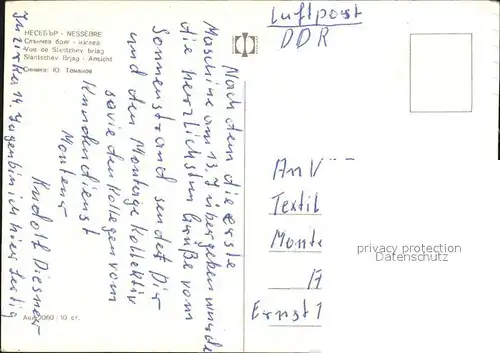 НЕСЕБЪР - NESSÉBRE
Слънчев бряг - изглед
Vue de Slantchev briag
Slantschev Brjag - Ansicht
Снимка: Ю. Томанов
Luftpost
DDR
Nach dem die erste
Maschine am 13.7 übergeben wurde
die herzlichsten Grüße vom
Sonnenstrand sendet Dir
und den Montage Kollektiv
sowie den Kollegen vom
Kundendienst
Monteur
Rudolf Diesner
14. Irgendein ich hier fertig
An V
Textil
Mont
Ernst T
privacy protection
Datenschutz
2060 | 10 ст.